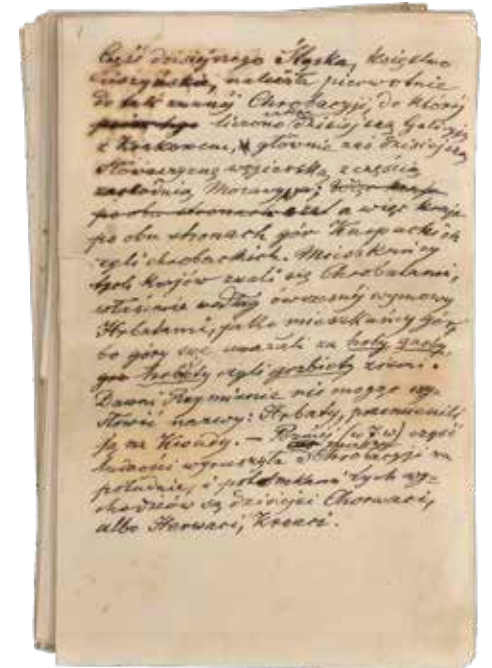 Część dzisiejszego Śląska, księstwo
Cieszyńskie, należała pierwotnie
do tak zwanéj Chrobacyje, do któréj
liczono dzisiejszą Galicyją
z Krakowem, głównie zaś dzisiejszą
Słowaczyznę węgierską z częścią
zachodnią Morawy;
po obu stronach a więc kraje
po obu stronach gór Karpackich
czyli chrobackich. Mieszkańcy
tych krajów zwali się Chrobatami,
właściwie według ówczesnéj wymowy
Hrbatami, jako mieszkańcy gór,
bo góry swe uważali za
hrobéty czyli grzbiety ziemi.
Dawni Rzymianie nie mogąc wy-
mówić nazwy: Hrbaty, przemienili
ją na . — Później (w 7 w) część
ludności wyruszyła z Chrobacyji na
południe, i potomkami tych wy-
chodźców są dzisiejsi Chorwaci,
albo Harwaci, Kroaci.